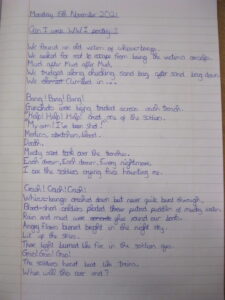 Monday 15th November 2021
Can I write WW1 poetry?
We found an old victim of whizzerbangs.
We waited for rest to escape from being the victims ourselves.
Mud after Mud after Mud,
We trudged along chucking sand bag after sand bag down.
We almost climbed in ...
Bang! Bang! Bang!
Gunshots were being traded across each trench.
"Help! Help! Help!" shouts one of the soldiers.
"My arm! I've been shot!"
Medics, stretcher, blood.
Death.
Muddy sand took over the trenches.
Each dream, Each dream, Every nightmare,
I see the soldiers crying this haunting me.
Crash! Crash! Crash!
Whizzerbangs crashed down but never quite burst through.
Blood-shot soldiers plodded through putrid puddles of mucky water.
Rain and mud were glue round our boots.
Angry flames burned bright in the night sky.
Lit up the skies.
Their light burned like fire in the soldiers eyes.
Grrr! Grrr! Grrr!
The soldiers heart beat like trains.
When will this war end?